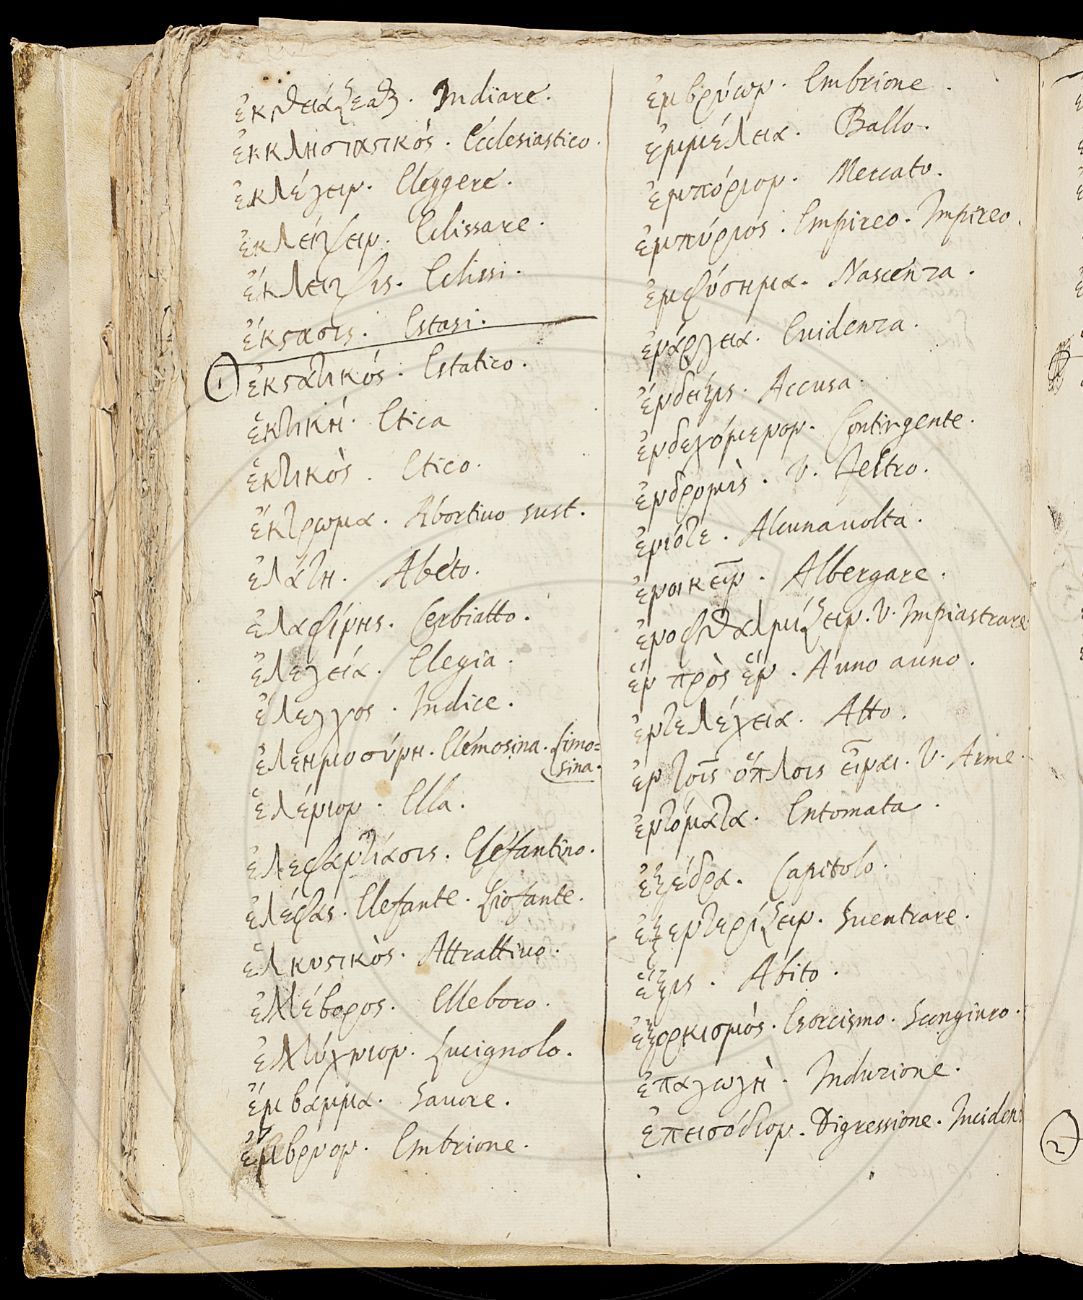 ἐκθειάζεσθ. Indiare.
ἐκκλησιαστικός. Ecclesiastico.
ἐκλέγειν. Eleggere.
ἐκλείψειν. Eclissare.
ἔκλειψις. Eclissi.
ἔκστασις. Estasi.
1 ἐκστατικός. Estatico.
ἑκτική. Etica
ἑκτικὸς. Etico.
ἔκτρωμα. Abortivo sust.
ἐλάτη. Abéto.
ἐλαφίνης. Cerbiatto.
ἐλεγεία. Elegia.
ἔλεγχος. Indice.
ἐλεημοσύνη. Elemosina. Limo=
sina.
ἑλένιον. Ella.
ἐλεφαντίασις. Elefantino.
ἐλέφας. Elefante. Liofante.
ἑλκυστικὸς. Attrattivo.
ἐλλέβορος. Elleboro.
ἐλλύχνιον. Lucignolo.
ἔμβαμμα. Savore.
ἔμβρυον. Embrione.
ἐμβρύων. Embrione.
ἐμμέλεια. Ballo.
ἐμπόριον. Mercato.
ἐμπύριος. Empireo. Impireo.
ἐμφύσημα. Nascenza.
ἐνάργεια. Evidenza.
ἔνδειξις. Accusa.
ἐνδεχόμενον. Contingente.
ἐνδρομὶς. V. Feltro.
ἐνιότε. Alcunavolta.
ἐνοικεῖν. Albergare.
ἐνοφθαλμίζειν. V. Impiastrare
ἓν πρὸς ἕν. A uno a uno.
ἐντελέχεια. Atto.
ἐν τοῖς ὅπλοις εἶναι. V. Arme.
ἐντόματα. Entomata.
ἐξέδρα. Capitolo.
ἐξεντερίζειν. Sventrare.
ἕξις. Abito.
ἐξορκισμὸς. Esorcismo. Scongiuro.
ἐπαγωγὴ. Induzione.
ἐπεισόδιον. Digressione. Inciden
2